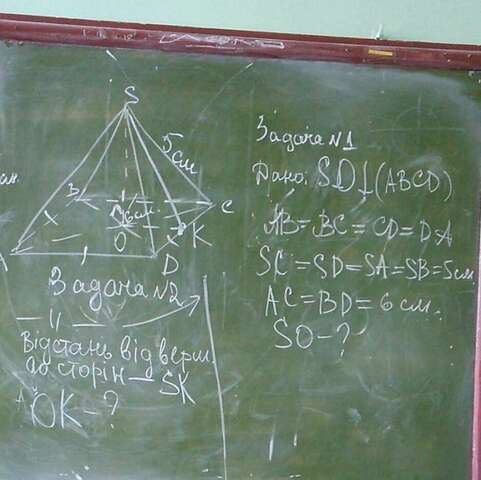 S
5 см
B
6 см.
C
O
K
D
Задача №2
— 11 —
Відстань від верш.
до сторін — SK
OK - ?
Задача №1
Дано: SO⊥(ABCD)
AB = BC = CD = DA
SC = SD = SA = SB = 5 см
AC = BD = 6 см.
SO - ?